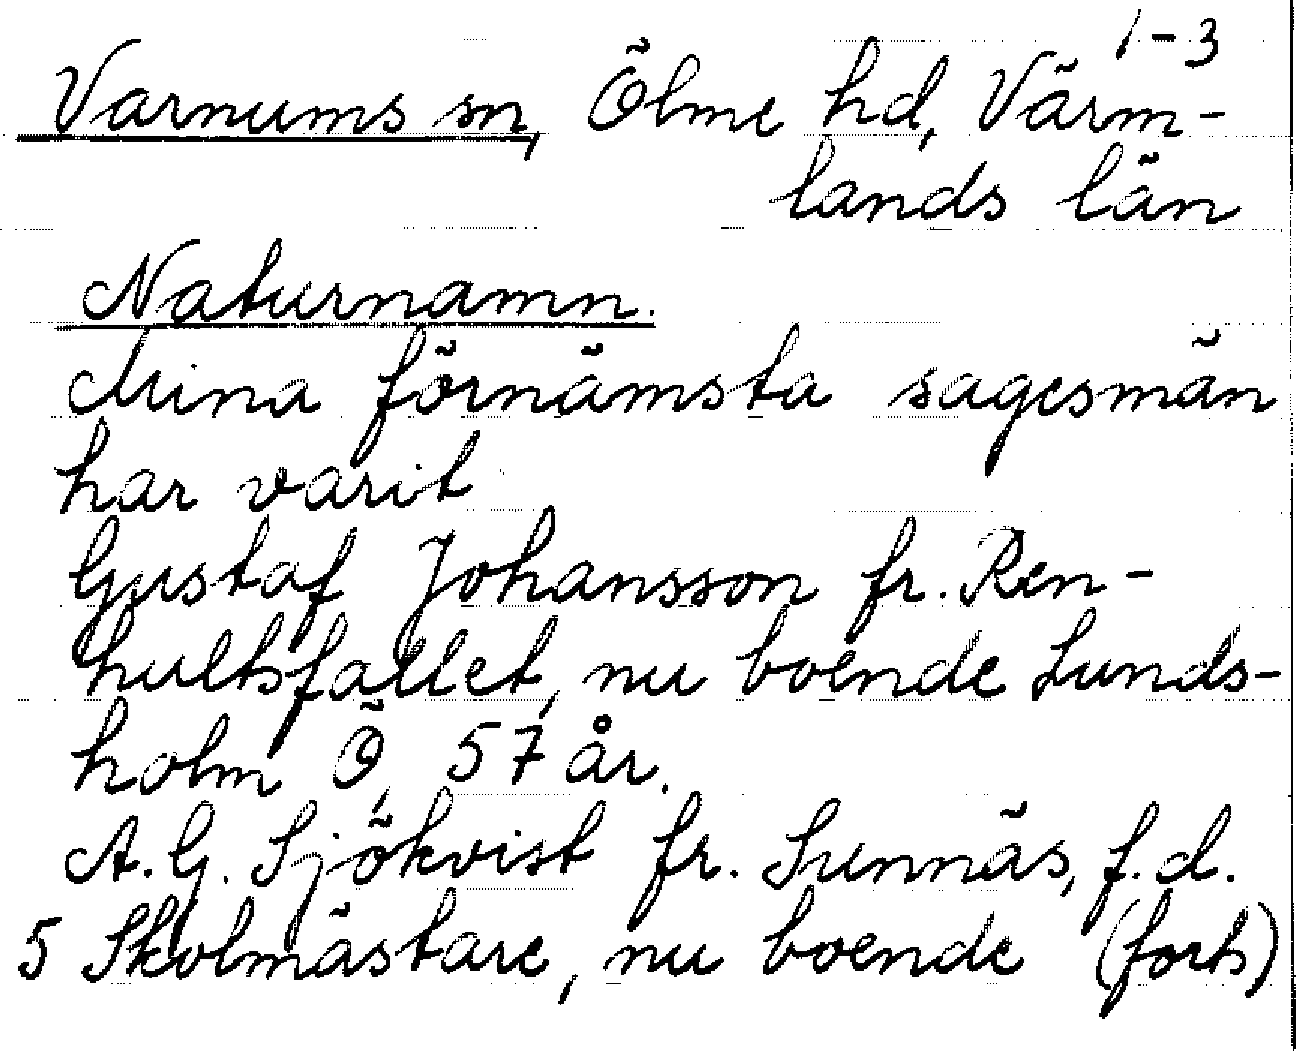 1-3
Varnums sn, Ölme hd, Värm-
lands län
Naturnamn.
Mina förnämsta sagesmän
har varit
Gustaf Johansson fr. Ren-
hultsfallet, nu boende Lunds-
holm Ö, 57 år.
A. G. Sjökvist fr. Sunnäs, f.d.
5 Skolmästare, nu boende (forts)